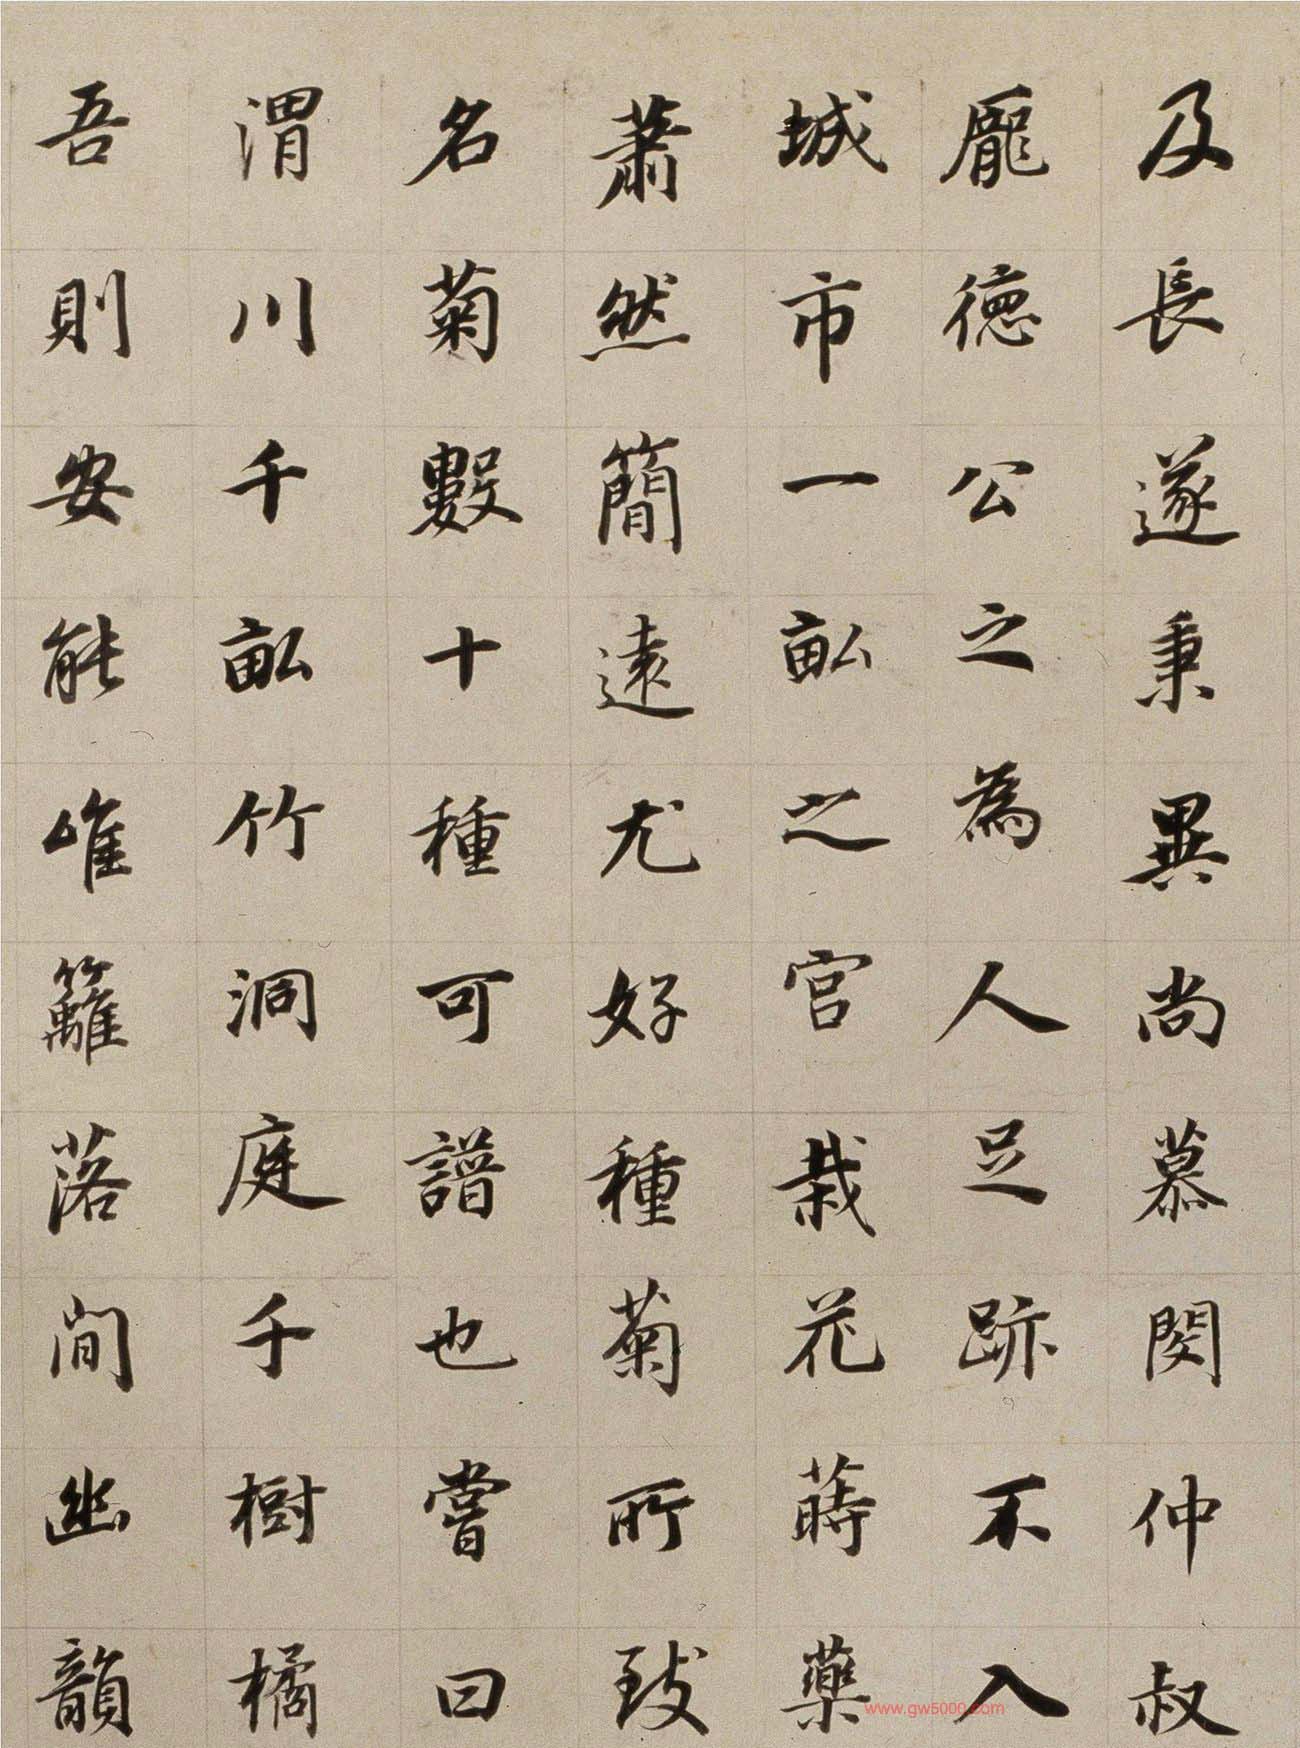 及長遂秉異尚慕閔仲叔
龐德公之為人足跡不入
城市一畝之宮栽花蒔藥
蕭然簡遠尤好種菊所致
名菊數十種可譜也嘗曰
渭川千畝竹洞庭千樹橘
吾則安能唯籬落間幽韻
www.gw5000.com